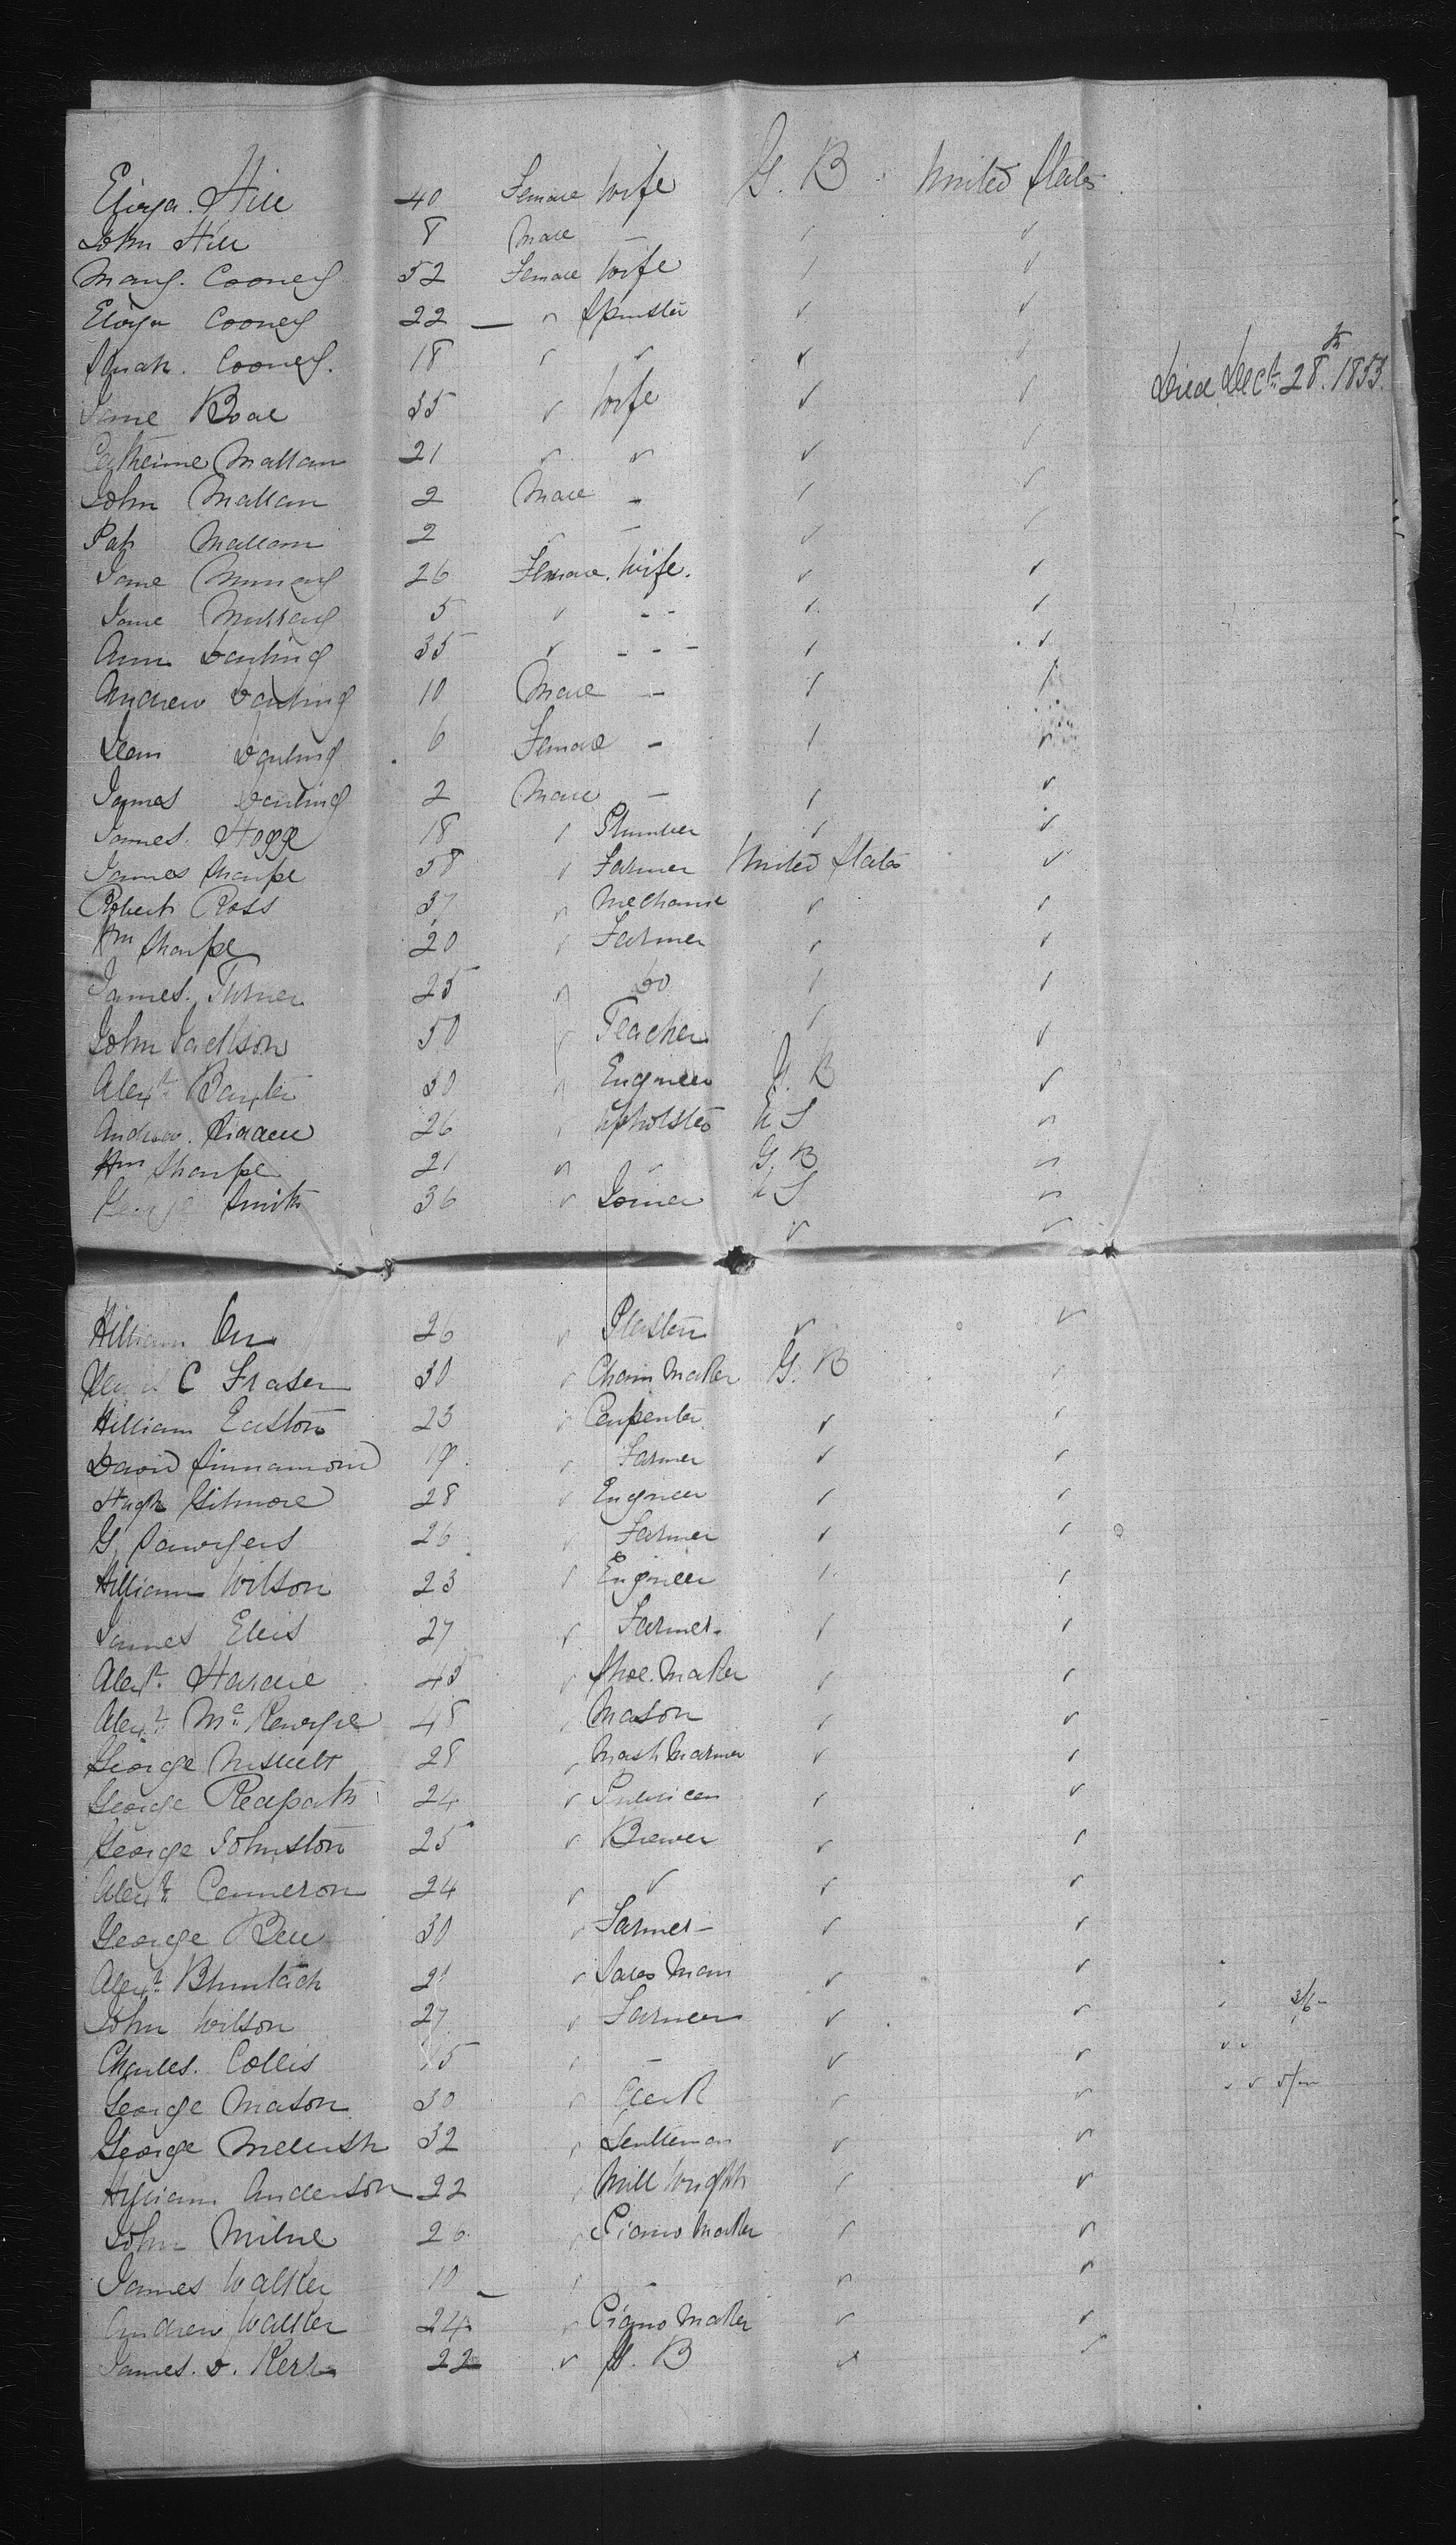 Eliza Hill 40 Female Wife G. B United States
John Hill 8 Male - ✓ ✓
Marg. Cooney 52 Female Wife ✓ ✓
Eliza Cooney 22 — ✓ Spinster ✓ ✓
Sarah. Cooney. 18 ✓ ✓ ✓ ✓
Jane Boal 35 ✓ Wife ✓ ✓ Died Dect. 28th. 1853.
Catherine Mallam 21 ✓ ✓ ✓ ✓
John Mallam 2 Male - ✓ ✓
Pat Mallam 2 ✓ - ✓ ✓
Jane Murray 26 Female. Wife. ✓ ✓
Jane Murray 5 ✓ - - ✓ ✓
Ann Darling 35 ✓ - - - ✓ ✓
Andrew Darling 10 Male - ✓ ✓
Jean Darling 6 Female - ✓ ✓
James Darling 2 Male - ✓ ✓
James. Hogg 18 ✓ Plumber ✓ ✓
James Sharpe 58 ✓ Farmer United States ✓
Robert Ross 37 ✓ Mechanic ✓ ✓
Wm Sharpe 20 ✓ Farmer ✓ ✓
James. Turner 25 ✓ Do ✓ ✓
John Jackson 50 ✓ Teacher ✓ ✓
Alexr. Baxter 30 ✓ Engineer G. B ✓
Andrew. 26 ✓ Upholster U S ✓
Wm Sharpe 21 ✓ ✓ G. B ✓
George Smith 36 ✓ Joiner U S ✓
✓ ✓
William Orr 26 ✓ Plaster ✓ ✓
C Fraser 30 ✓ Chain Maker G. B ✓
William Easton 23 ✓ Carpenter ✓ ✓
David Sinnamond 19 ✓ Farmer ✓ ✓
Hugh Gilmore 28 ✓ Engineer ✓ ✓
G. 26 ✓ Farmer ✓ ✓
William Wilson 23 ✓ Engineer ✓ ✓
James Ellis 27 ✓ Farmer ✓ ✓
Alexr. Hardie 45 ✓ Shoe Maker ✓ ✓
Alexr. Mc. Kenzie 48 ✓ Mason ✓ ✓
George 28 ✓ ✓ ✓
George Redpath 24 ✓ Publican ✓ ✓
George Johnston 25 ✓ Brewer ✓ ✓
Alexr. Cameron 24 ✓ ✓ ✓ ✓
George Bell 30 ✓ Farmer ✓ ✓
Alexr. 21 ✓ Sales Man ✓ ✓
John Wilson 27 ✓ Farmer ✓ ✓
Charles. Collis 15 ✓ - ✓ ✓
George Mason 30 ✓ Clerk ✓ ✓
George Mellish 32 ✓ Gentleman ✓ ✓
William Anderson 22 ✓ Mill Wright ✓ ✓
John Milne 26 ✓ Piano Maker ✓ ✓
James Walker 10 - ✓ - ✓ ✓
Andrew Walker 24 ✓ Piano Maker ✓ ✓
James. D. Kerr 22 ✓ B ✓ ✓